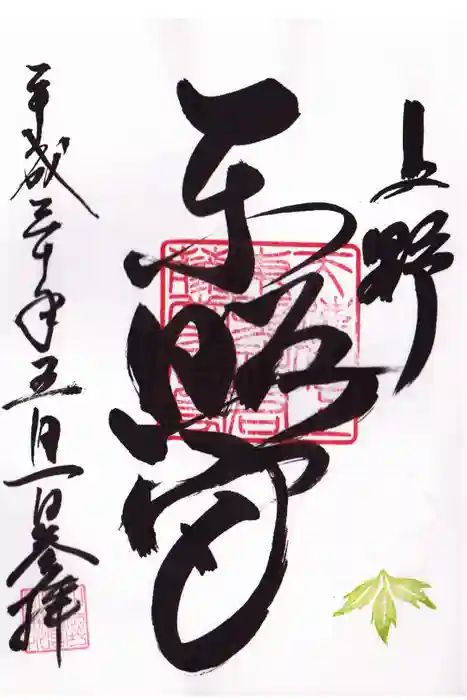 上野
東照宮
平成三十年五月一日参拝